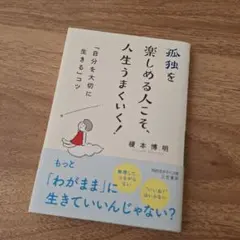 孤独を
楽しめる人こそ、
人生うまくいく!
「自分を大切に
生きる」コツ
榎本博明
もっと
「わがまま」に
生きていいんじゃない?